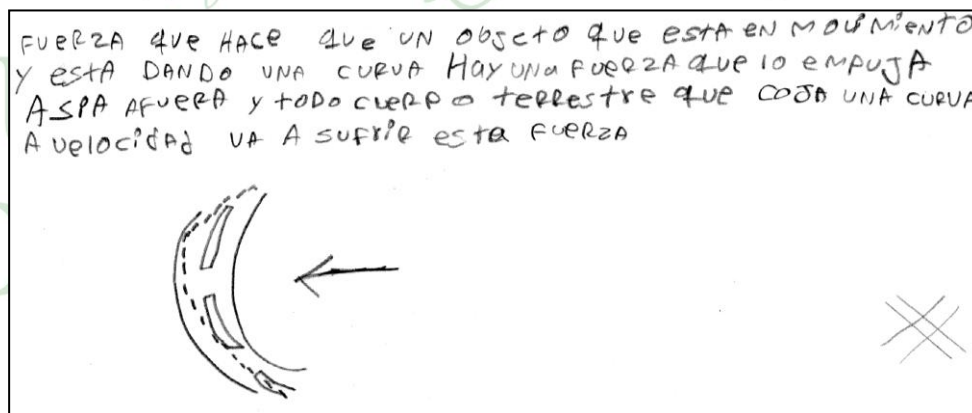 FUERZA QUE HACE QUE UN OBJETO QUE ESTA EN MOUIMIENTO
Y ESTA DANDO UNA CURUA HAY UNA FUERZA QUE LO EMPUJA
ASPA AFUERA Y TODO CUERPO TERRESTRE QUE COJA UNA CURUA
A VELOCIDAD VA A SUFRIR ESTA FUERZA